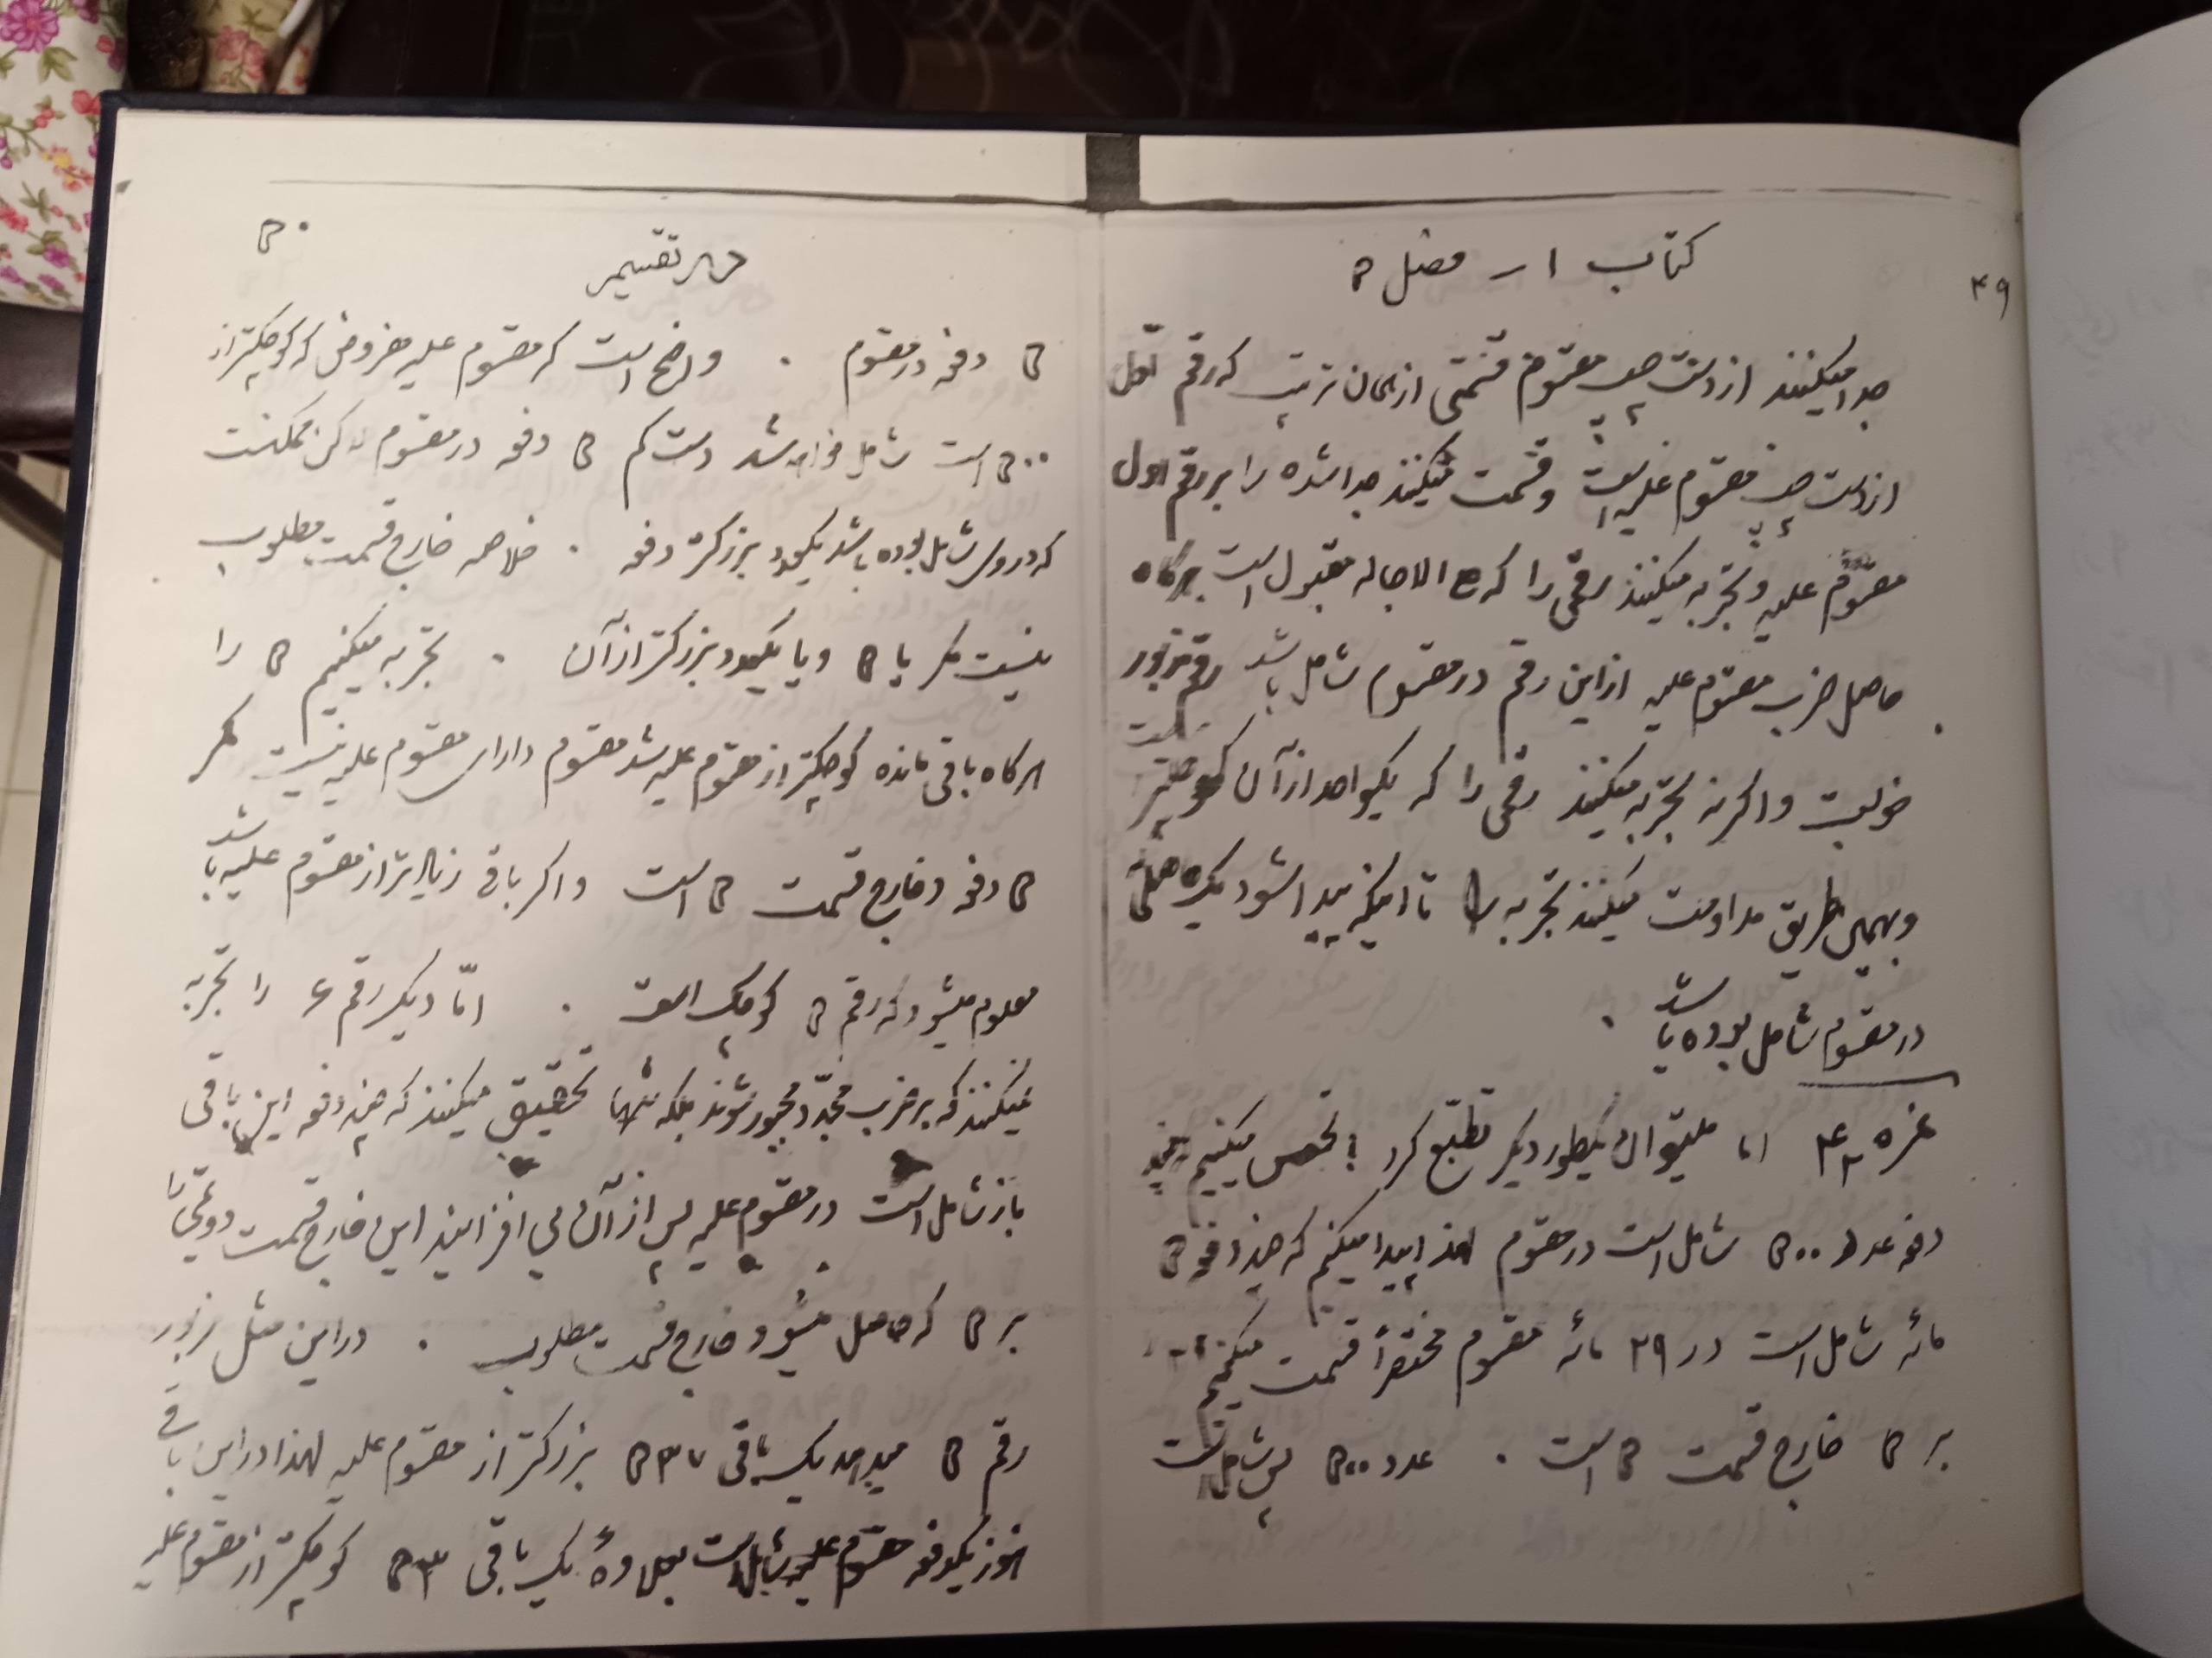 ۴۹
کتاب ۱ – فصل ۵
جدا میکنند از دست چپ مقسوم قسمتی از همان ترتیب که رقم اول
از دست چپ مقسوم علیه است و قسمت میکنند جدا شده را بر رقم اول
مقسوم علیه و تجربه میکنند رقمی را که مع الاجاله مقبول است هرکاه
حاصل ضرب مقسوم علیه از این رقم در مقسوم شامل باشد رقم مزبور
خوبست و اکر نه تجربه میکنند رقمی را که یکواحد از آن کوچکتر است
و بهمین طریق مداومت میکنند تجربه را تا اینکه پیدا شود یک حاصلی
در مقسوم شامل بوده باشد .
نمره ۴۲ اما میتوان بطور دیکر کرد ؛ تفحص میکنیم چند
دفعه عدد ۵۰۰ شامل است در مقسوم لهذا پیدا میکنم که چند دفعه ۵
مائه شامل است در ۲۹ مائه مقسوم مختصراً قسمت میکنیم ۲۹
بر ۵ خارج قسمت ۵ است . عدد ۵۰۰ پس شامل است
۵۰
در تقسیم
۵ دفعه در مقسوم . واضح است که مقسوم علیه مفروض که کوچکتر از
۵۰۰ است شامل خواهد شد دست کم ۵ دفعه در مقسوم لکن ممکنست
که در وی شامل بوده باشد یکعدد بزرکتر دفعه . خلاصه خارج قسمت مطلوب
نیست مکر یا ۵ و یا یکعدد بزرکتر از آن . تجربه میکنیم ۵ را
هرکاه باقی مانده کوچکتر از مقسوم علیه شد مقسوم دارای مقسوم علیه نیست مکر
۵ دفعه و خارج قسمت ۵ است و اکر باقی زیادتر از مقسوم علیه باشد
معلوم میشود که رقم ۵ کوچک است . امّا دیکر رقم ۶ را تجربه
نمیکنند که بر ضرب مجدّد مجبور شوند بلکه تنها تحقیق میکنند که چند دفعه این باقی
باز شامل است در مقسوم علیه پس از آن می افزایند این خارج قسمت دویمی را
بر ۵ که حاصل میشود خارج قسمت مطلوب . در این مثل مزبور
رقم ۵ میدهد یک باقی ۵۳۷ بزرکتر از مقسوم علیه لهذا در این باقی
هنوز یکدفعه مقسوم علیه شامل است بعلاوهٔ یک باقی ۵۳ کوچکتر از مقسوم علیه